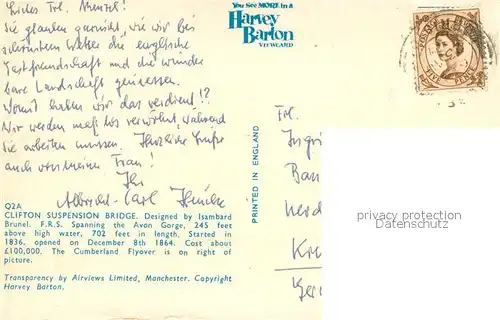 Liebes Frl. Menzel!
Sie glauben garnicht, wie wir bei
schönstem Wetter die englische
Gastfreundschaft und die wunder
bare Landschaft geniessen.
Womit haben wir das verdient!?
Wir werden maßlos verwöhnt, während
Sie arbeiten müssen. Herzliche Grüße
auch von meiner Frau!
Ihr
Albrecht-Carl
You See MORE in a
Harvey
Barton
VIEWCARD
Q2A
CLIFTON SUSPENSION BRIDGE. Designed by Isambard
Brunel. F.R.S. Spanning the Avon Gorge, 245 feet
above high water, 702 feet in length. Started in
1836, opened on December 8th 1864. Cost about
£100,000. The Cumberland Flyover is on right of
picture.
Transparency by Airviews Limited, Manchester. Copyright
Harvey Barton.
PRINTED IN ENGLAND
Frl.
privacy protection
Datenschutz